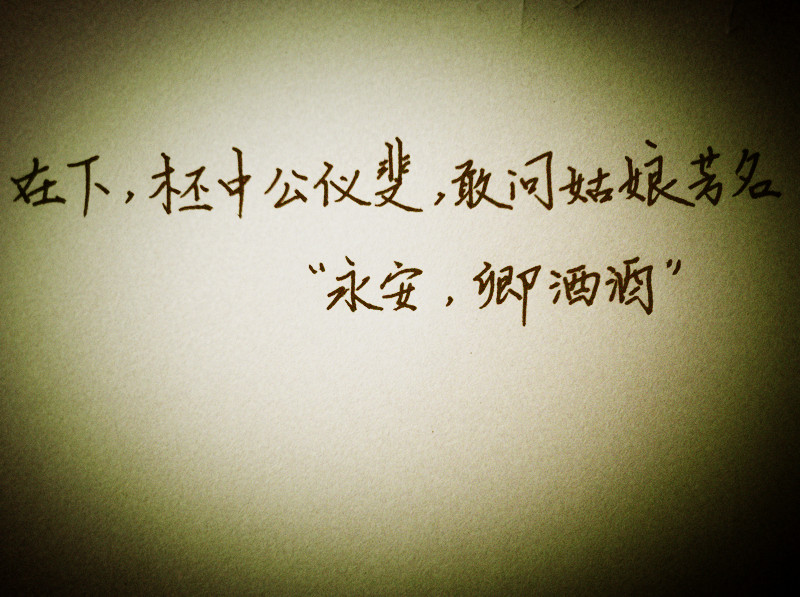 在下,柸中公仪斐,敢问姑娘芳名
“永安,卿酒酒”